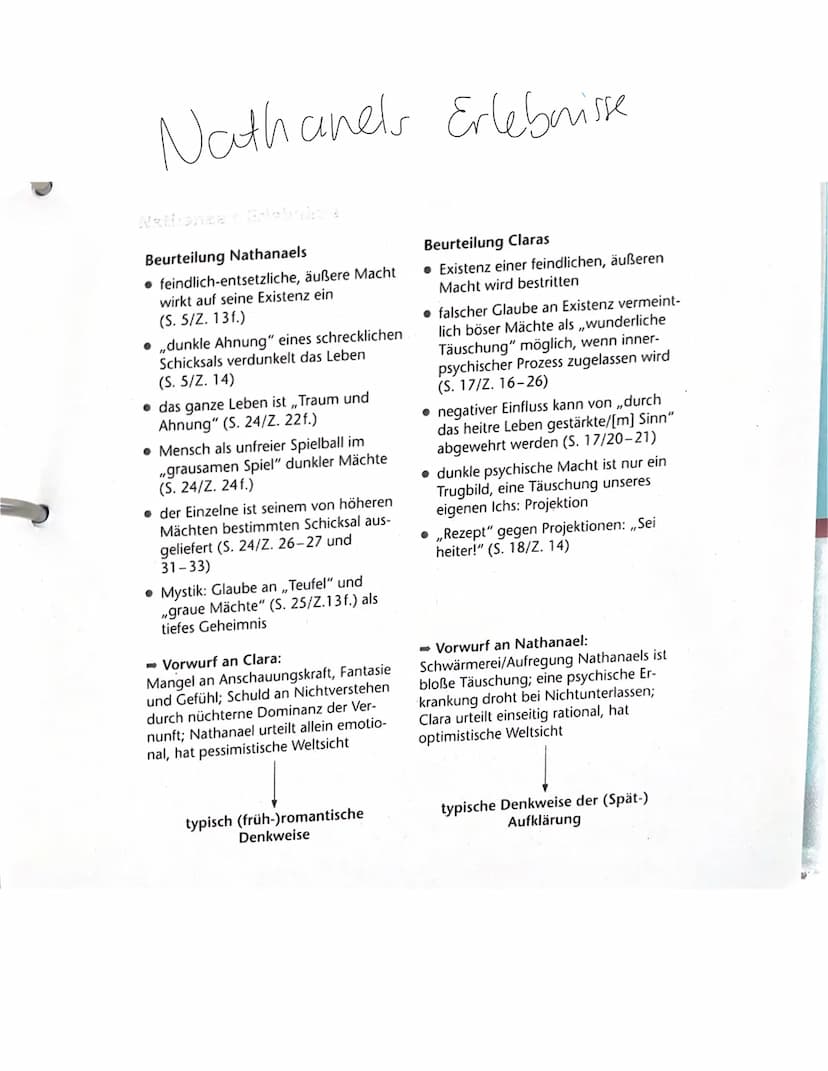 Nathanels Erlebnisse
Beurteilung Nathanaels
• feindlich-entsetzliche, äußere Macht
wirkt auf seine Existenz ein
(S. 5/Z. 13f.)
• „dunkle Ahnung“ eines schrecklichen
Schicksals verdunkelt das Leben
(S. 5/Z. 14)
• das ganze Leben ist „Traum und
Ahnung“ (S. 24/Z. 22f.)
• Mensch als unfreier Spielball im
„grausamen Spiel“ dunkler Mächte
(S. 24/Z. 24f.)
• der Einzelne ist seinem von höheren
Mächten bestimmten Schicksal aus-
geliefert (S. 24/Z. 26–27 und
31–33)
• Mystik: Glaube an „Teufel“ und
„graue Mächte“ (S. 25/Z.13f.) als
tiefes Geheimnis
➡ Vorwurf an Clara:
Mangel an Anschauungskraft, Fantasie
und Gefühl; Schuld an Nichtverstehen
durch nüchterne Dominanz der Ver-
nunft; Nathanael urteilt allein emotio-
nal, hat pessimistische Weltsicht
typisch (früh-)romantische
Denkweise
Beurteilung Claras
• Existenz einer feindlichen, äußeren
Macht wird bestritten
• falscher Glaube an Existenz vermeint-
lich böser Mächte als „wunderliche
Täuschung“ möglich, wenn inner-
psychischer Prozess zugelassen wird
(S. 17/Z. 16–26)
• negativer Einfluss kann von „durch
das heitre Leben gestärkte/[m] Sinn“
abgewehrt werden (S. 17/20–21)
• dunkle psychische Macht ist nur ein
Trugbild, eine Täuschung unseres
eigenen Ichs: Projektion
• „Rezept“ gegen Projektionen: „Sei
heiter!“ (S. 18/Z. 14)
➡ Vorwurf an Nathanael:
Schwärmerei/Aufregung Nathanaels ist
bloße Täuschung; eine psychische Er-
krankung droht bei Nichtunterlassen;
Clara urteilt einseitig rational, hat
optimistische Weltsicht
typische Denkweise der (Spät-)
Aufklärung